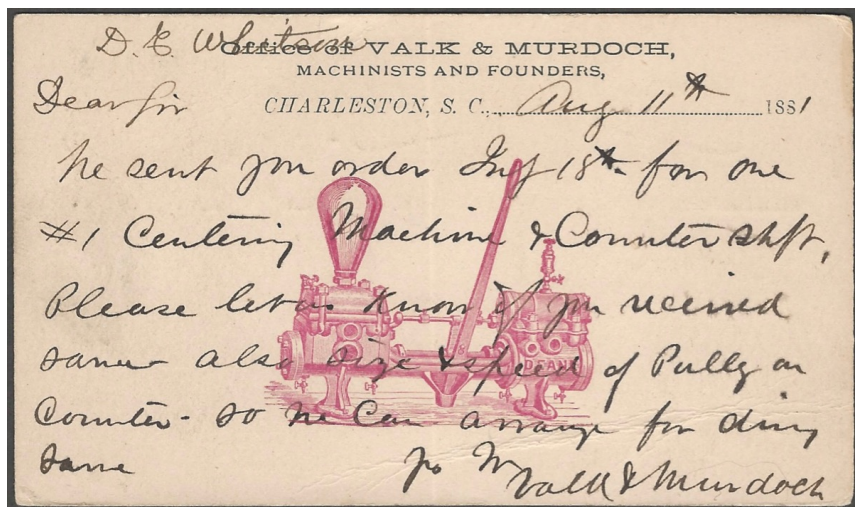 D. E. Whitson
Office of VALK & MURDOCH,
MACHINISTS AND FOUNDERS,
Dear Sir
CHARLESTON, S. C., Aug 11th 1881
We sent you order July 18th for one
#1 Centering Machine & Counter shft,
Please let us know if you received
same also size & speed of Pully on
Counter - so we can arrange for
same
Yo
Valk & Murdoch
DEAN